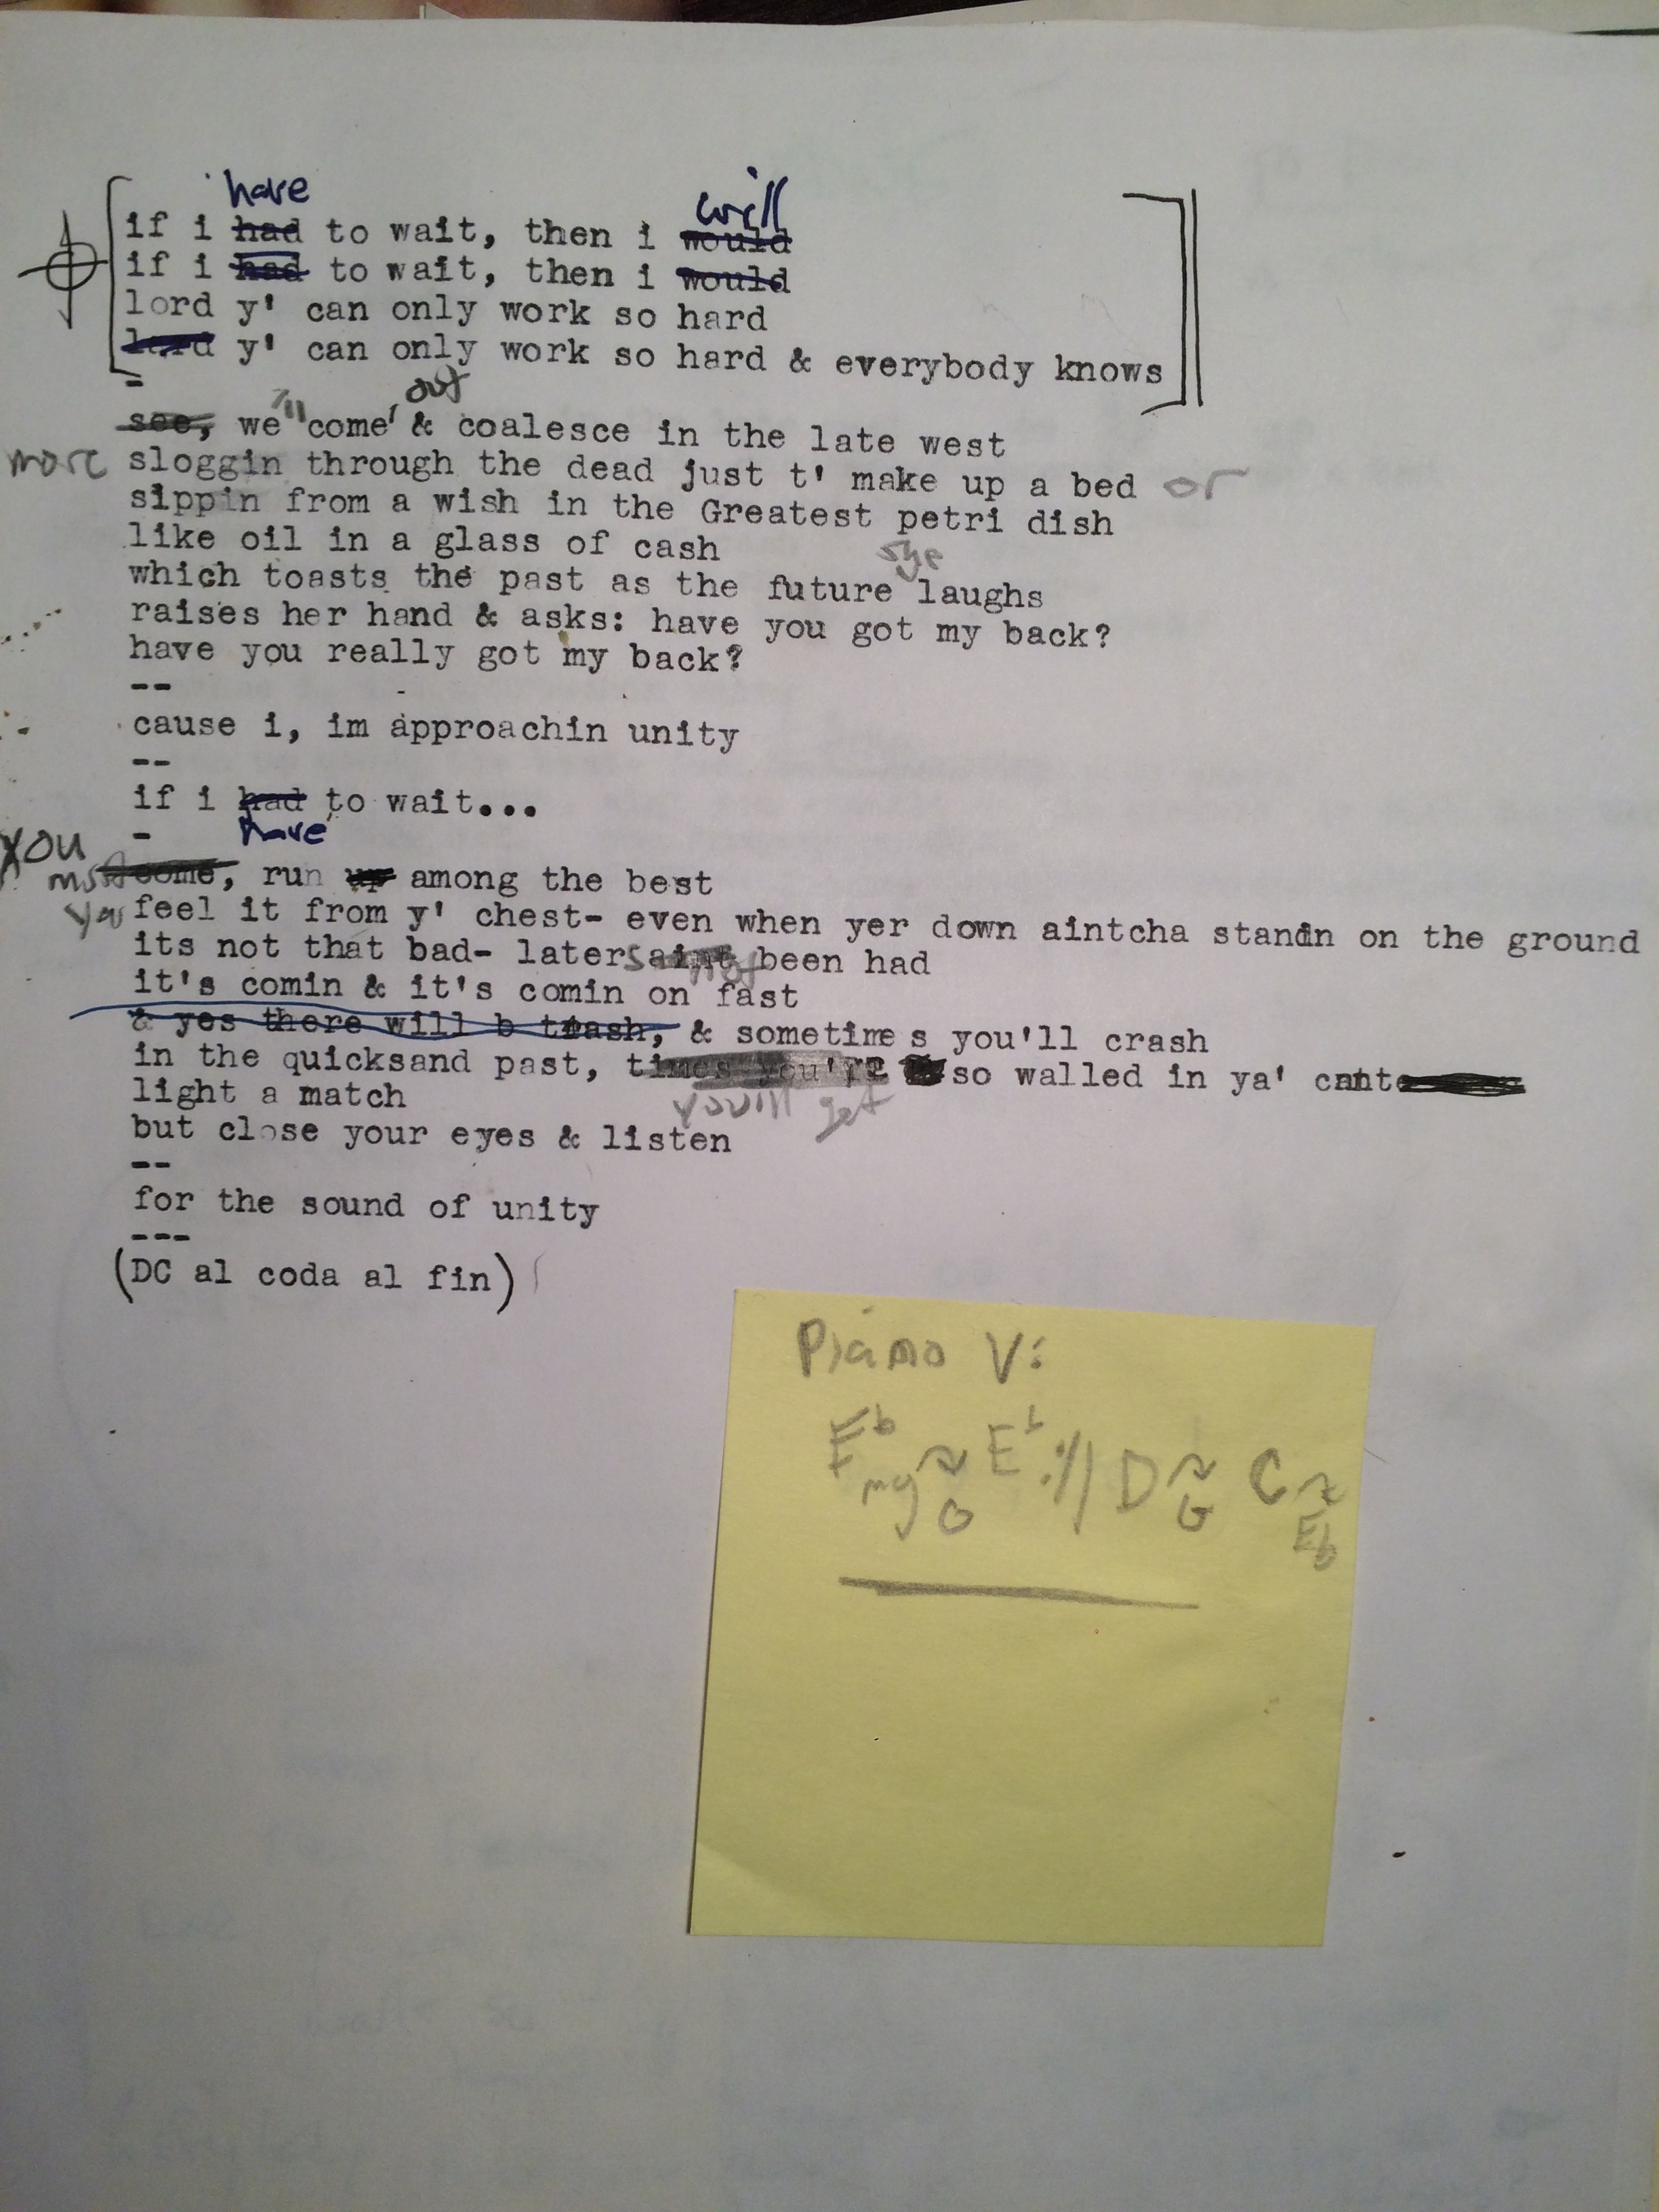 have will
if i had to wait, then i would
if i had to wait, then i would
lord y' can only work so hard
lord y' can only work so hard & everybody knows
-
'll out
see, we come & coalesce in the late west
more sloggin through the dead just t' make up a bed or
sippin from a wish in the Greatest petri dish
like oil in a glass of cash
she
which toasts the past as the future laughs
raises her hand & asks: have you got my back?
have you really got my back?
--
cause i, im approachin unity
--
if i had to wait...
- have
you
come, run up among the best
feel it from y' chest- even when yer down aintcha standin on the ground
its not that bad- laters aint been had
not
it's comin & it's comin on fast
& yes there will b trash, & sometimes you'll crash
in the quicksand past, times you're so walled in ya' cant
you'll get
light a match
but close your eyes & listen
--
for the sound of unity
---
(DC al coda al fin)
Piano V:
Eb E b :// D ~ C ~
G G Eb